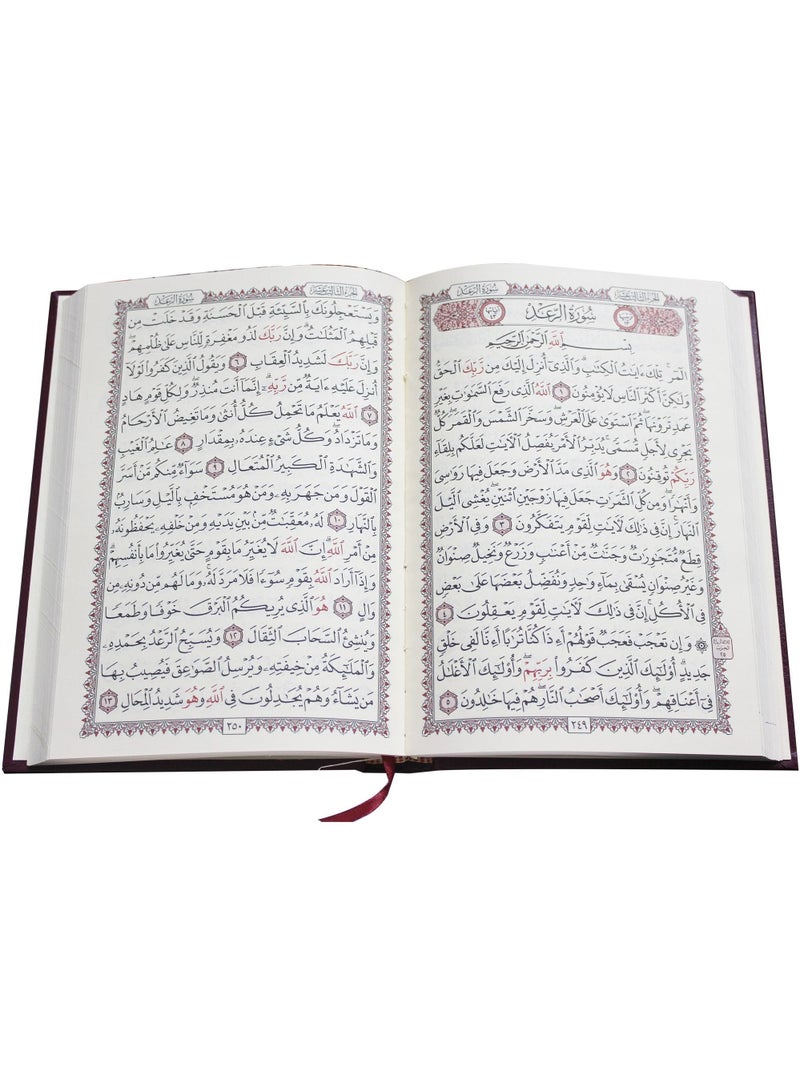 سُورَةُ الرَّعْدِ
الجُزْءُ الثَّالِثَ عَشَرَ
سُورَةُ الرَّعْدِ
بِسْمِ ٱللَّهِ ٱلرَّحْمَٰنِ ٱلرَّحِيمِ
الٓمٓر ۚ تِلْكَ ءَايَٰتُ ٱلْكِتَٰبِ ۗ وَٱلَّذِىٓ أُنزِلَ إِلَيْكَ مِن رَّبِّكَ ٱلْحَقُّ
وَلَٰكِنَّ أَكْثَرَ ٱلنَّاسِ لَا يُؤْمِنُونَ ١ ٱللَّهُ ٱلَّذِى رَفَعَ ٱلسَّمَٰوَٰتِ بِغَيْرِ
عَمَدٍ تَرَوْنَهَا ۖ ثُمَّ ٱسْتَوَىٰ عَلَى ٱلْعَرْشِ ۖ وَسَخَّرَ ٱلشَّمْسَ وَٱلْقَمَرَ ۖ كُلٌّ
يَجْرِى لِأَجَلٍ مُّسَمًّى ۚ يُدَبِّرُ ٱلْأَمْرَ يُفَصِّلُ ٱلْءَايَٰتِ لَعَلَّكُم بِلِقَآءِ
رَبِّكُمْ تُوقِنُونَ ٢ وَهُوَ ٱلَّذِى مَدَّ ٱلْأَرْضَ وَجَعَلَ فِيهَا رَوَٰسِىَ
وَأَنْهَٰرًا ۖ وَمِن كُلِّ ٱلثَّمَرَٰتِ جَعَلَ فِيهَا زَوْجَيْنِ ٱثْنَيْنِ ۖ يُغْشِى ٱلَّيْلَ
ٱلنَّهَارَ ۚ إِنَّ فِى ذَٰلِكَ لَءَايَٰتٍ لِّقَوْمٍ يَتَفَكَّرُونَ ٣ وَفِى ٱلْأَرْضِ
قِطَعٌ مُّتَجَٰوِرَٰتٌ وَجَنَّٰتٌ مِّنْ أَعْنَٰبٍ وَزَرْعٌ وَنَخِيلٌ صِنْوَانٌ
وَغَيْرُ صِنْوَانٍ يُسْقَىٰ بِمَآءٍ وَٰحِدٍ وَنُفَضِّلُ بَعْضَهَا عَلَىٰ بَعْضٍ
فِى ٱلْأُكُلِ ۚ إِنَّ فِى ذَٰلِكَ لَءَايَٰتٍ لِّقَوْمٍ يَعْقِلُونَ ٤
۞ وَإِن تَعْجَبْ فَعَجَبٌ قَوْلُهُمْ أَءِذَا كُنَّا تُرَٰبًا أَءِنَّا لَفِى خَلْقٍ
جَدِيدٍ ۗ أُو۟لَٰٓئِكَ ٱلَّذِينَ كَفَرُوا۟ بِرَبِّهِمْ ۖ وَأُو۟لَٰٓئِكَ ٱلْأَغْلَٰلُ
فِىٓ أَعْنَاقِهِمْ ۖ وَأُو۟لَٰٓئِكَ أَصْحَٰبُ ٱلنَّارِ ۖ هُمْ فِيهَا خَٰلِدُونَ ٥
٢٤٩
سُورَةُ الرَّعْدِ
الجُزْءُ الثَّالِثَ عَشَرَ
وَيَسْتَعْجِلُونَكَ بِٱلسَّيِّئَةِ قَبْلَ ٱلْحَسَنَةِ وَقَدْ خَلَتْ مِن
قَبْلِهِمُ ٱلْمَثُلَٰتُ ۗ وَإِنَّ رَبَّكَ لَذُو مَغْفِرَةٍ لِّلنَّاسِ عَلَىٰ ظُلْمِهِمْ ۖ
وَإِنَّ رَبَّكَ لَشَدِيدُ ٱلْعِقَابِ ٦ وَيَقُولُ ٱلَّذِينَ كَفَرُوا۟ لَوْلَآ
أُنزِلَ عَلَيْهِ ءَايَةٌ مِّن رَّبِّهِۦٓ ۗ إِنَّمَآ أَنتَ مُنذِرٌ ۖ وَلِكُلِّ قَوْمٍ هَادٍ
٧ ٱللَّهُ يَعْلَمُ مَا تَحْمِلُ كُلُّ أُنثَىٰ وَمَا تَغِيضُ ٱلْأَرْحَامُ
وَمَا تَزْدَادُ ۖ وَكُلُّ شَىْءٍ عِندَهُۥ بِمِقْدَارٍ ٨ عَٰلِمُ ٱلْغَيْبِ
وَٱلشَّهَٰدَةِ ٱلْكَبِيرُ ٱلْمُتَعَالِ ٩ سَوَآءٌ مِّنكُم مَّنْ أَسَرَّ
ٱلْقَوْلَ وَمَن جَهَرَ بِهِۦ وَمَنْ هُوَ مُسْتَخْفٍۭ بِٱلَّيْلِ وَسَارِبٌۢ
بِٱلنَّهَارِ ١٠ لَهُۥ مُعَقِّبَٰتٌ مِّنۢ بَيْنِ يَدَيْهِ وَمِنْ خَلْفِهِۦ يَحْفَظُونَهُۥ
مِنْ أَمْرِ ٱللَّهِ ۗ إِنَّ ٱللَّهَ لَا يُغَيِّرُ مَا بِقَوْمٍ حَتَّىٰ يُغَيِّرُوا۟ مَا بِأَنفُسِهِمْ ۗ
وَإِذَآ أَرَادَ ٱللَّهُ بِقَوْمٍ سُوٓءًا فَلَا مَرَدَّ لَهُۥ ۚ وَمَا لَهُم مِّن دُونِهِۦ مِن
وَالٍ ١١ هُوَ ٱلَّذِى يُرِيكُمُ ٱلْبَرْقَ خَوْفًا وَطَمَعًا
وَيُنشِئُ ٱلسَّحَابَ ٱلثِّقَالَ ١٢ وَيُسَبِّحُ ٱلرَّعْدُ بِحَمْدِهِۦ
وَٱلْمَلَٰٓئِكَةُ مِنْ خِيفَتِهِۦ وَيُرْسِلُ ٱلصَّوَٰعِقَ فَيُصِيبُ بِهَا
مَن يَشَآءُ وَهُمْ يُجَٰدِلُونَ فِى ٱللَّهِ وَهُوَ شَدِيدُ ٱلْمِحَالِ ١٣
٢٥٠